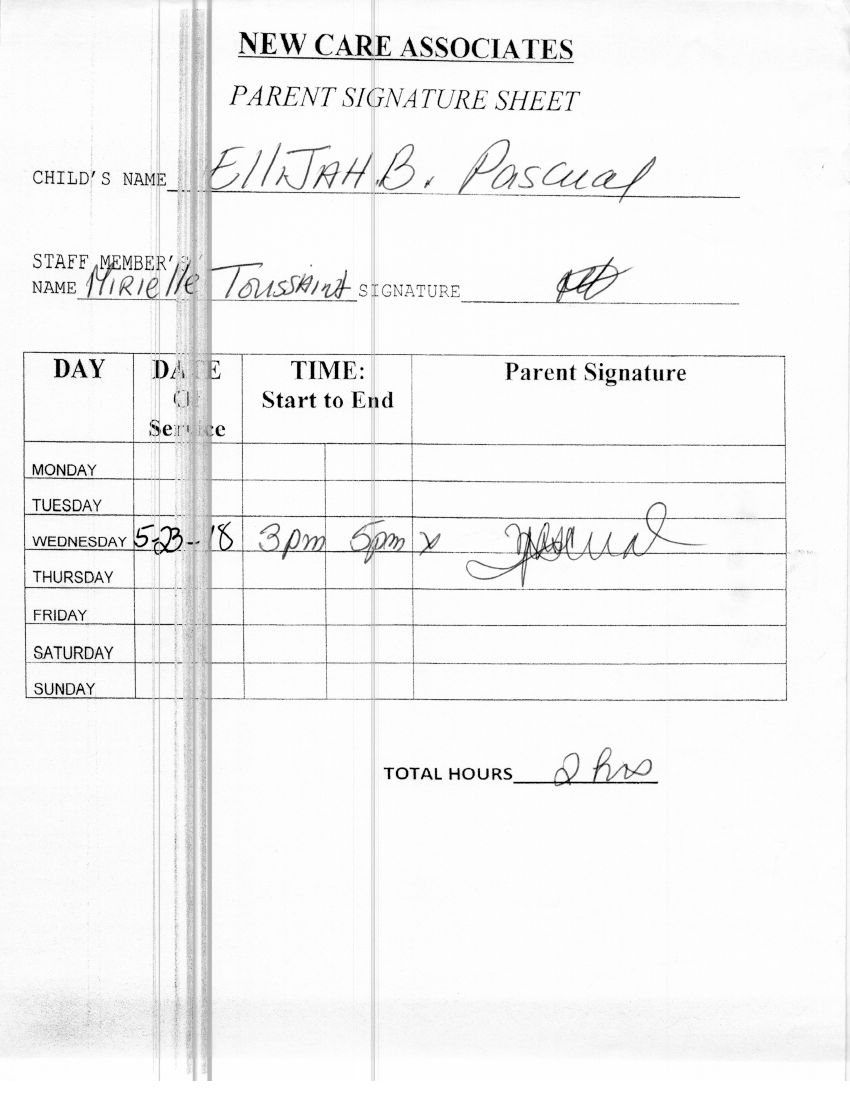 NEW CARE ASSOCIATES
PARENT SIGNATURE SHEET
CHILD'S NAME ElliJAH B. Pascual
STAFF MEMBER'S
NAME MIRIelle Toussaint SIGNATURE
DAY DATE Of Service TIME: Start to End Parent Signature
MONDAY
TUESDAY
WEDNESDAY 5-23-18 3pm 5pm x Pascual
THURSDAY
FRIDAY
SATURDAY
SUNDAY
TOTAL HOURS 2 hrs